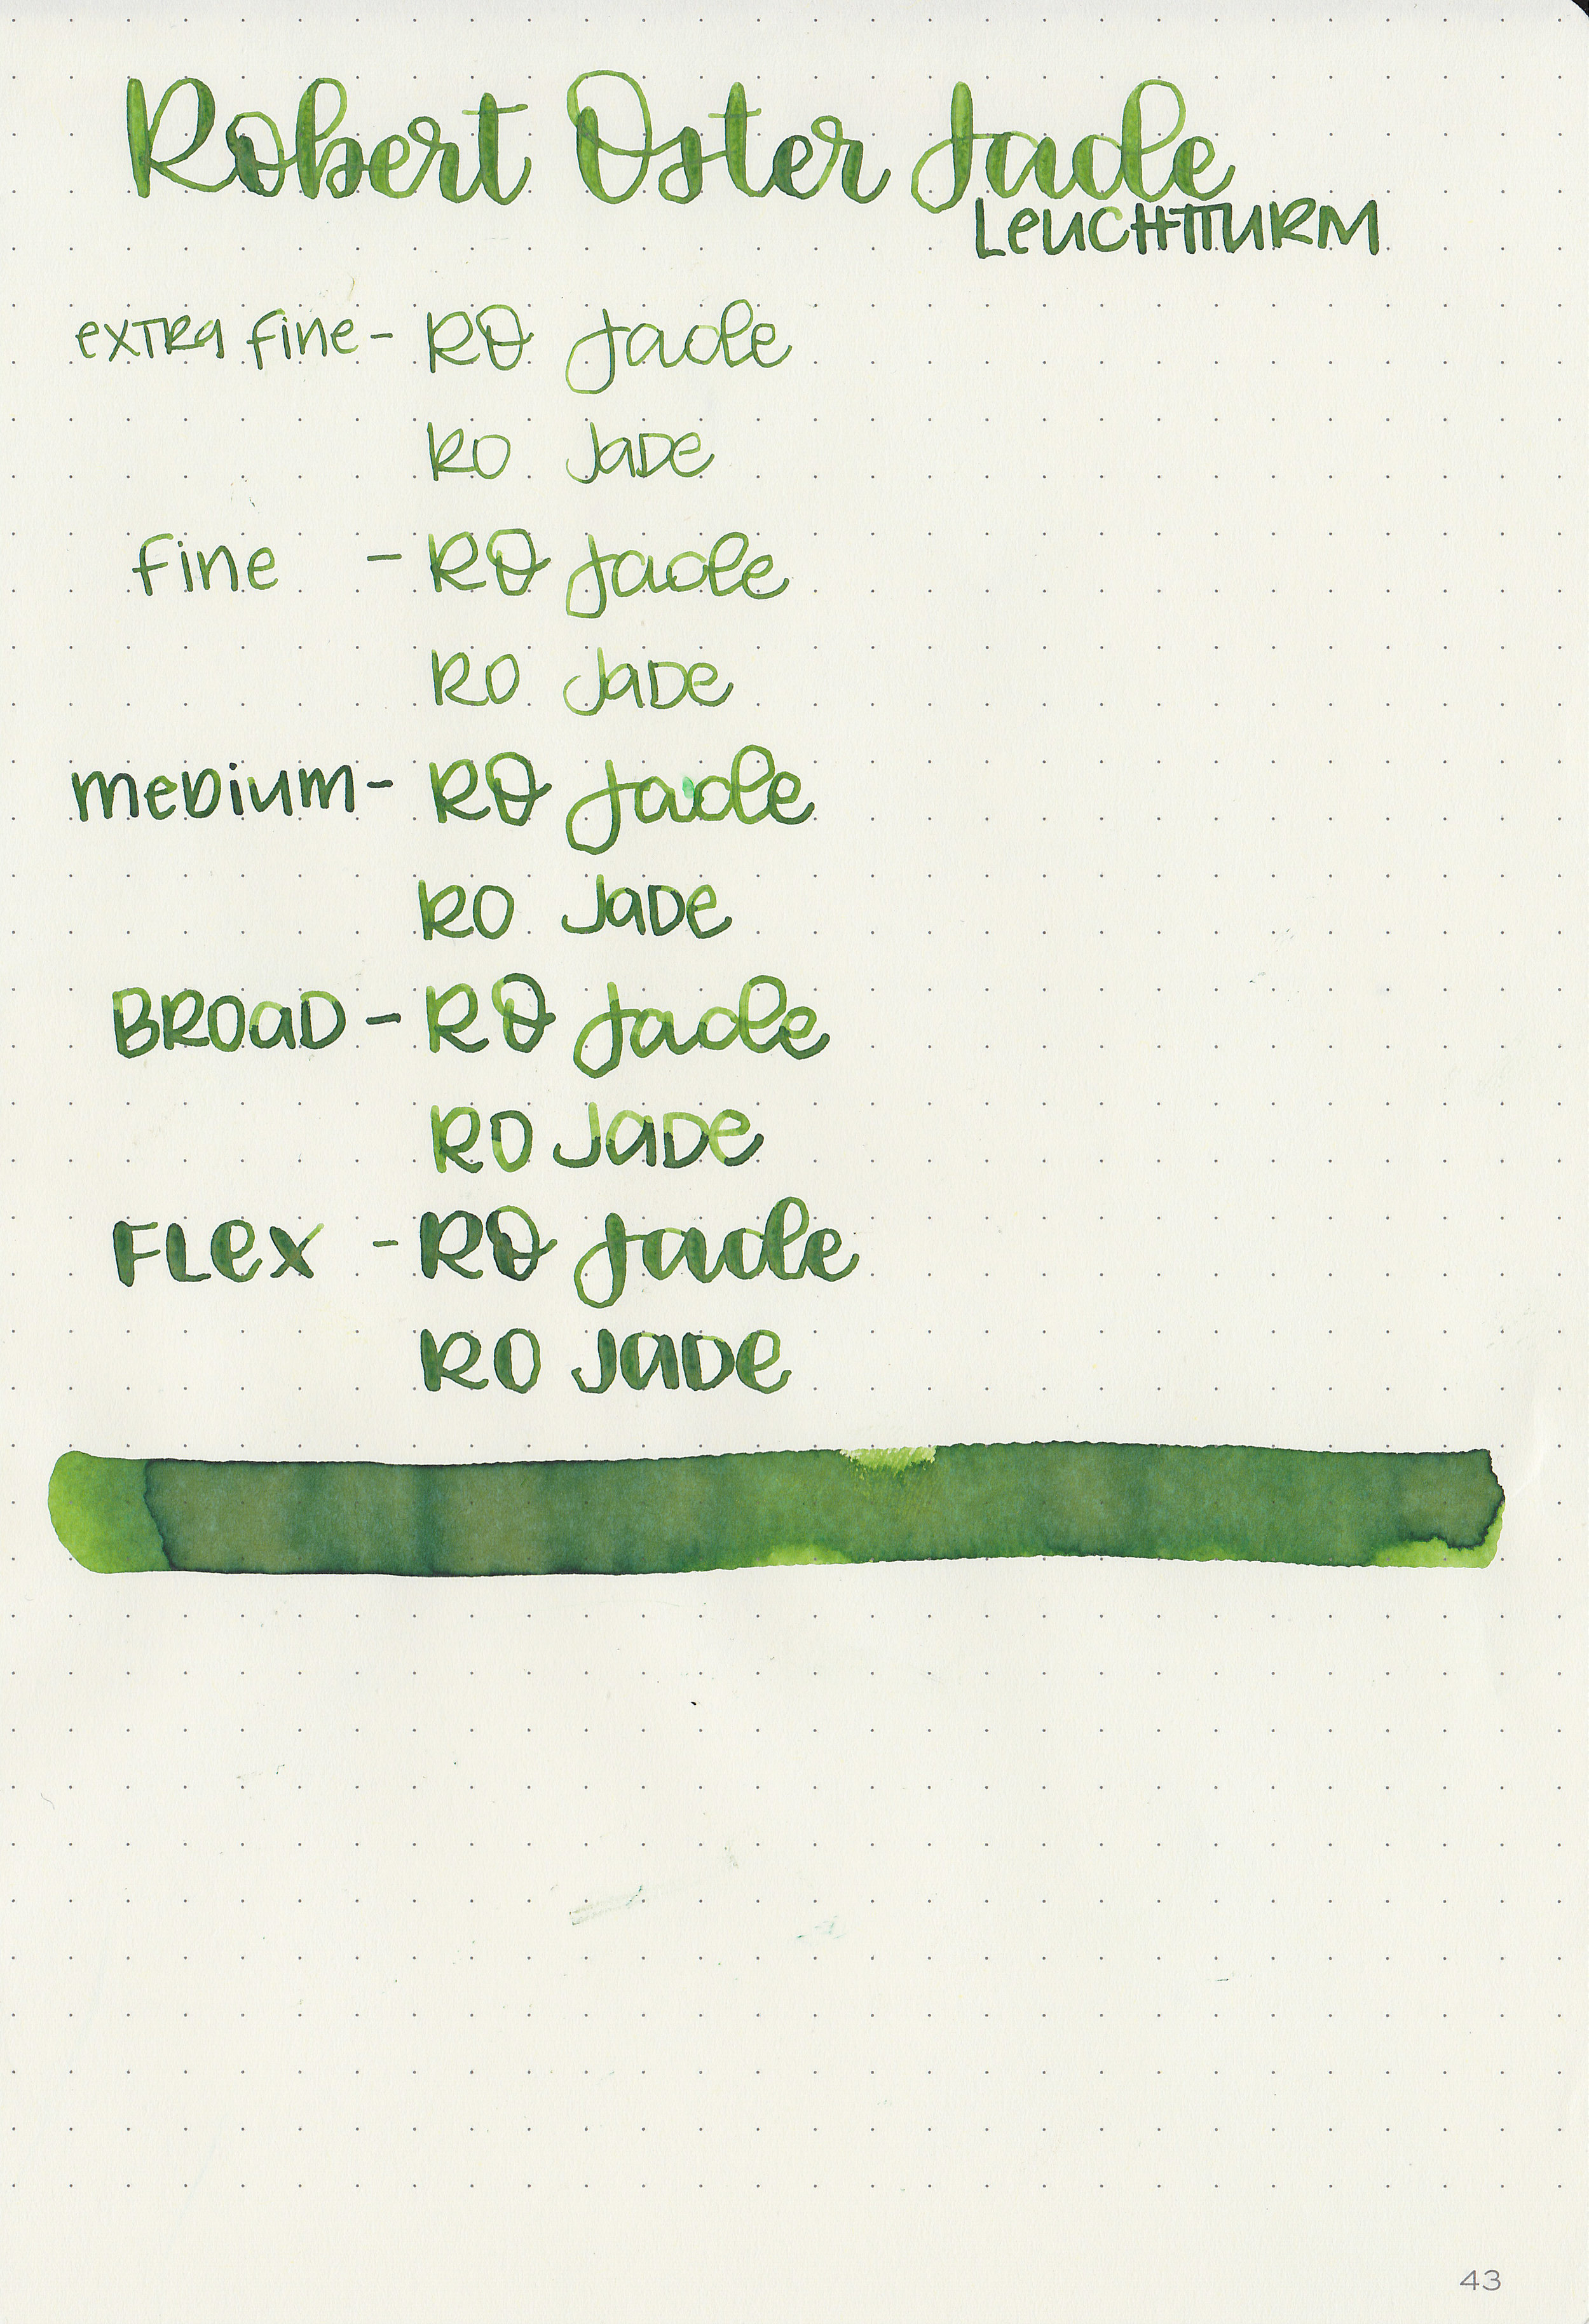 Robert Oster Jade
LeUCHTTURM
exTRa fine - RO Jade
RO JaDe
fine - RO Jade
RO JaDe
meDium - RO Jade
RO JaDe
BROaD - RO Jade
RO JaDe
FLex - RO Jade
RO JaDe
43